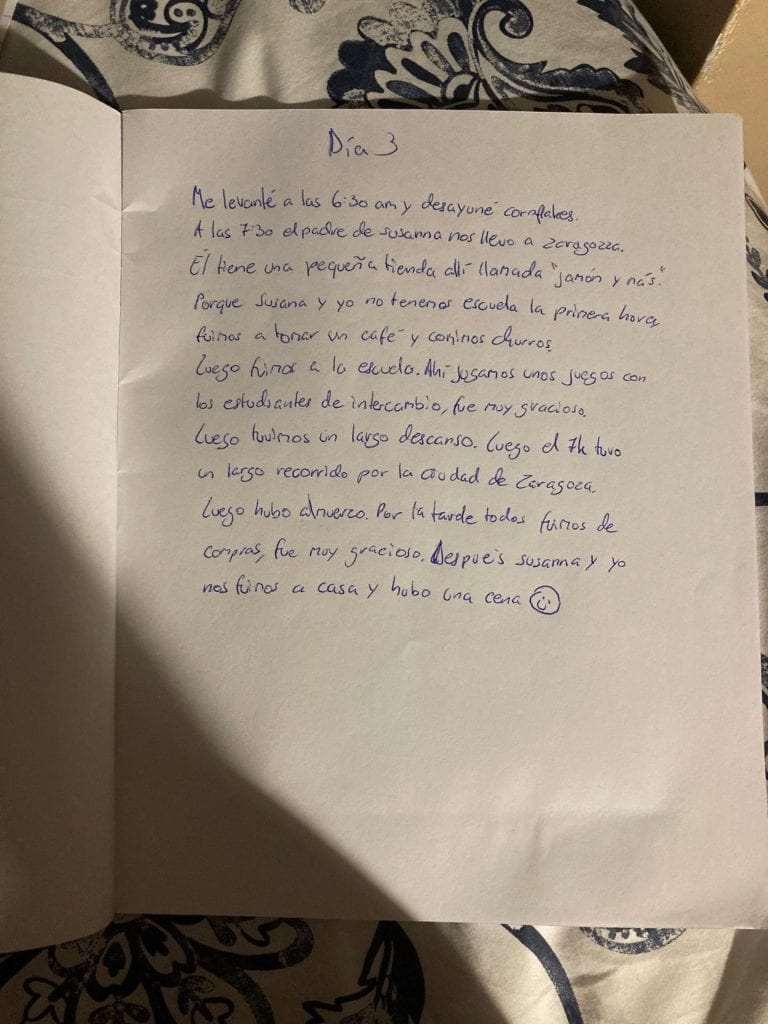 Día 3
Me levanté a las 6:30 am y desayuné cornflakes.
A las 7:30 el padre de susanna nos llevo a Zaragozza.
Él tiene una pequeña tienda allí llamada "jamón y más".
Porque Susana y yo no tenemos escuela la primera hora,
fuimos a tomar un café y comimos churros.
Luego fuimos a la escuela. Ahí jugamos unos juegos con
los estudiantes de intercambio, fue muy gracioso.
Luego tuvimos un largo descanso. Luego el 7k tuvo
un largo recorrido por la ciudad de Zaragoza.
Luego hubo almuerzo. Por la tarde todos fuimos de
compras, fue muy gracioso. Después susanna y yo
nos fuimos a casa y hubo una cena